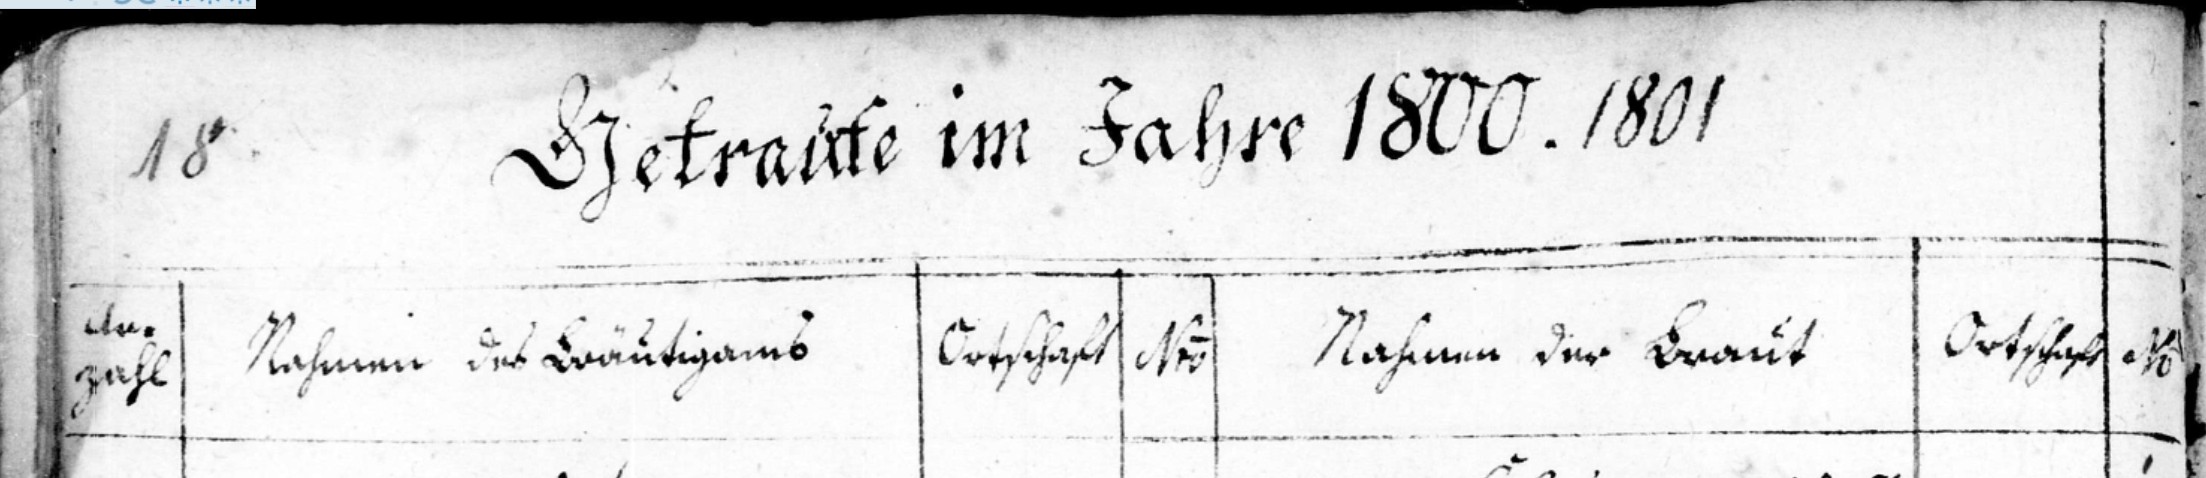 18
Getraute im Jahre 1800. 1801
An-
zahl
Nahmen des Bräutigams
Ortschaft
Nro
Nahmen der Braut
Ortschaft
No